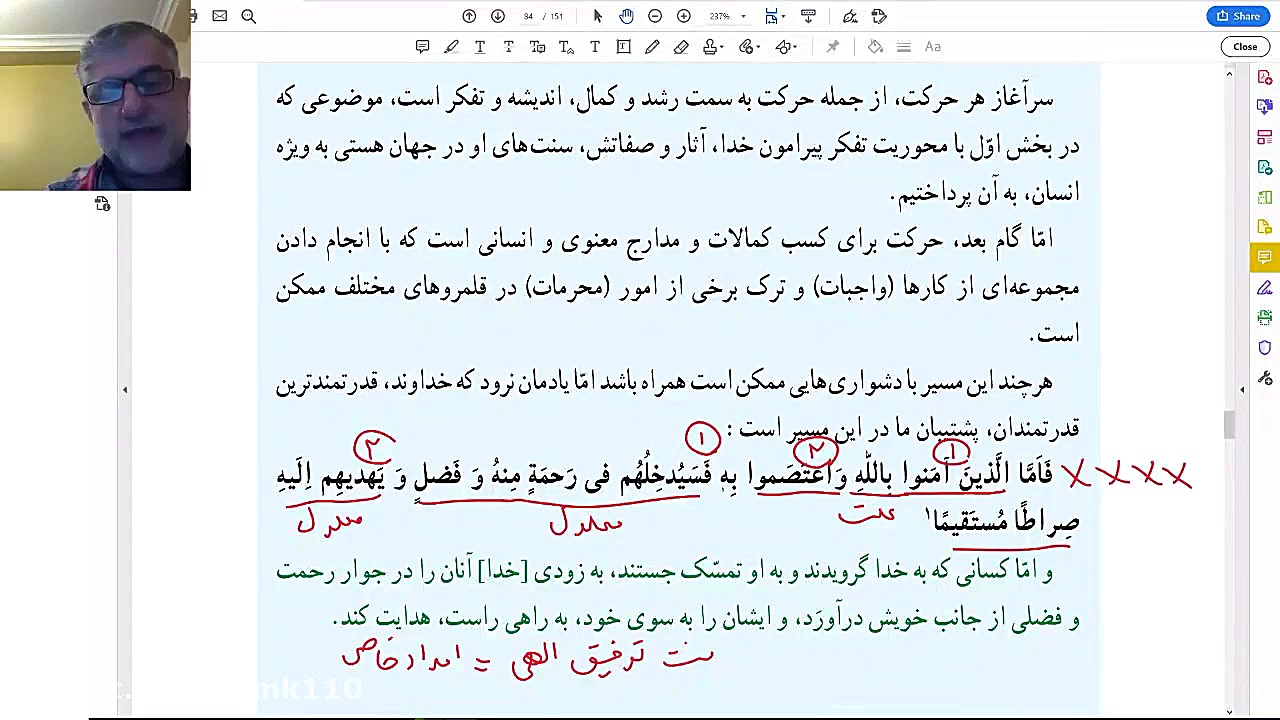 84 / 151
237%
Share
Close
سرآغاز هر حرکت، از جمله حرکت به سمت رشد و کمال، اندیشه و تفکر است، موضوعی که
در بخش اوّل با محوریت تفکر پیرامون خدا، آثار و صفاتش، سنت‌های او در جهان هستی به ویژه
انسان، به آن پرداختیم.
امّا گام بعد، حرکت برای کسب کمالات و مدارج معنوی و انسانی است که با انجام دادن
مجموعه‌ای از کارها (واجبات) و ترک برخی از امور (محرمات) در قلمروهای مختلف ممکن
است.
هرچند این مسیر با دشواری‌هایی ممکن است همراه باشد امّا یادمان نرود که خداوند، قدرتمندترین
قدرتمندان، پشتیبان ما در این مسیر است :
۱ ۲ ۱ ۲
فَاَمَّا الَّذینَ آمَنوا بِاللّٰهِ وَاعتَصَموا بِهٖ فَسَیُدخِلُهُم فی رَحمَةٍ مِنهُ وَ فَضلٍ وَ یَهدیهِم اِلَیهِ
علت معلول معلول
صِراطًا مُستَقیمًا۱
و امّا کسانی که به خدا گرویدند و به او تمسّک جستند، به زودی [خدا] آنان را در جوار رحمت
و فضلی از جانب خویش درآورَد، و ایشان را به سوی خود، به راهی راست، هدایت کند.
سنت توفیق الهی = امداد خاص
mk110